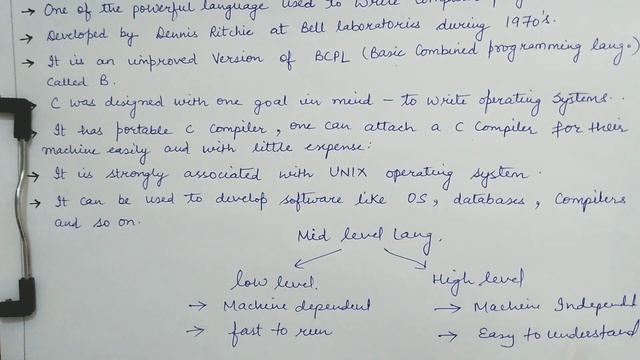 → One of the powerful language used to write
→ Developed by Dennis Ritchie at Bell laboratories during 1970's.
→ It is an improved Version of BCPL (Basic Combined programming lang.)
called B.
C was designed with one goal in mind - to write operating Systems.
→ It has portable C Compiler, one can attach a C Compiler for their
machine easily and with little expense:
→ It is strongly associated with UNIX operating system.
→ It can be used to develop software like OS, databases, Compilers
and so on.
Mid level Lang.
low level. High level
→ Machine dependent → Machine Independt
→ fast to run → Easy to understand